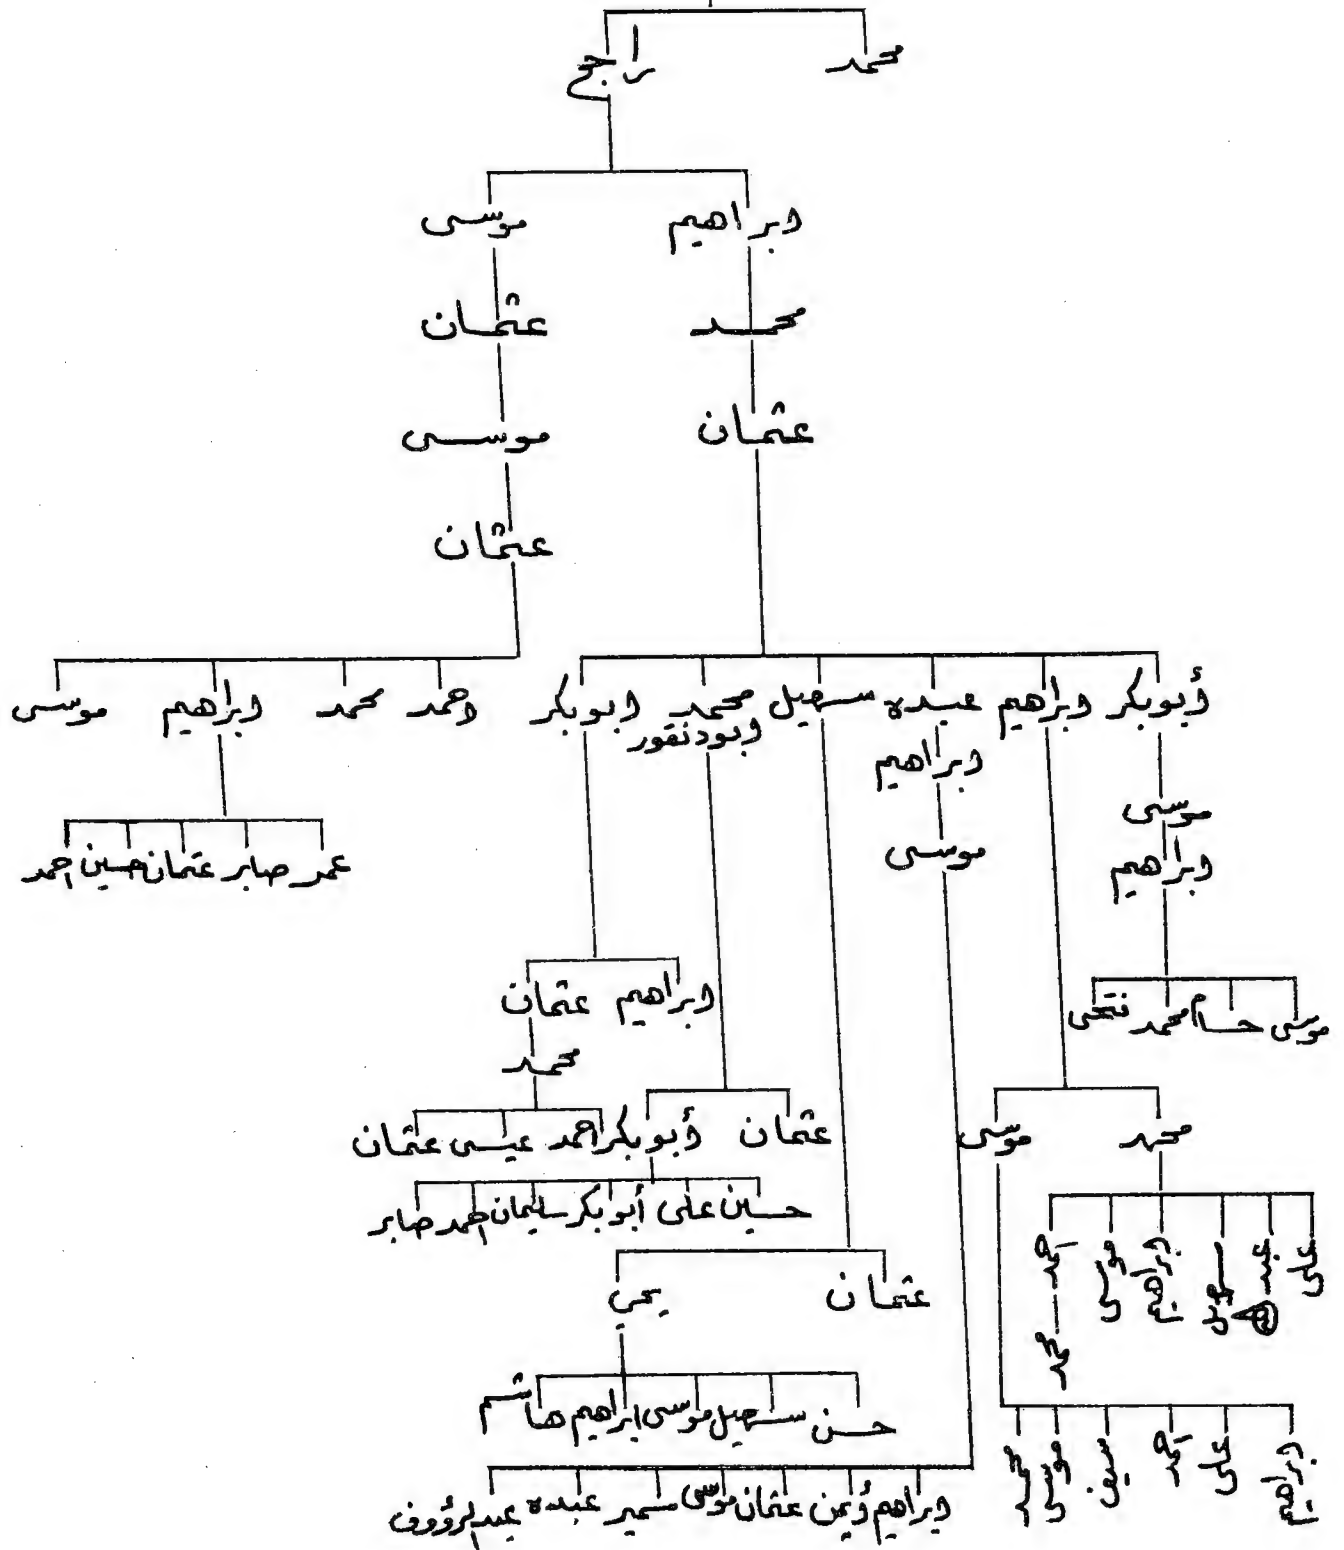 محمد راجح
ابراهيم موسى
محمد عثمان
عثمان موسى
عثمان
أبوبكر ابراهيم عبده سهيل محمد ابوبكر احمد محمد ابراهيم موسى
ابودنقور
ابراهيم
موسى
موسى عمر صابر عثمان حسين احمد
ابراهيم
ابراهيم عثمان
موسى حسام محمد فتحى
محمد
محمد موسى عثمان أبوبكر احمد عيسى عثمان
حسين على أبوبكر سليمان احمد صابر
على سهيل ابراهيم موسى احمد محمد
عثمان يحي
حسن سهيل موسى ابراهيم هاشم
ابراهيم على احمد سيف موسى محمد
ابراهيم أيمن عثمان موسى سمير عبده عبدالرؤوف